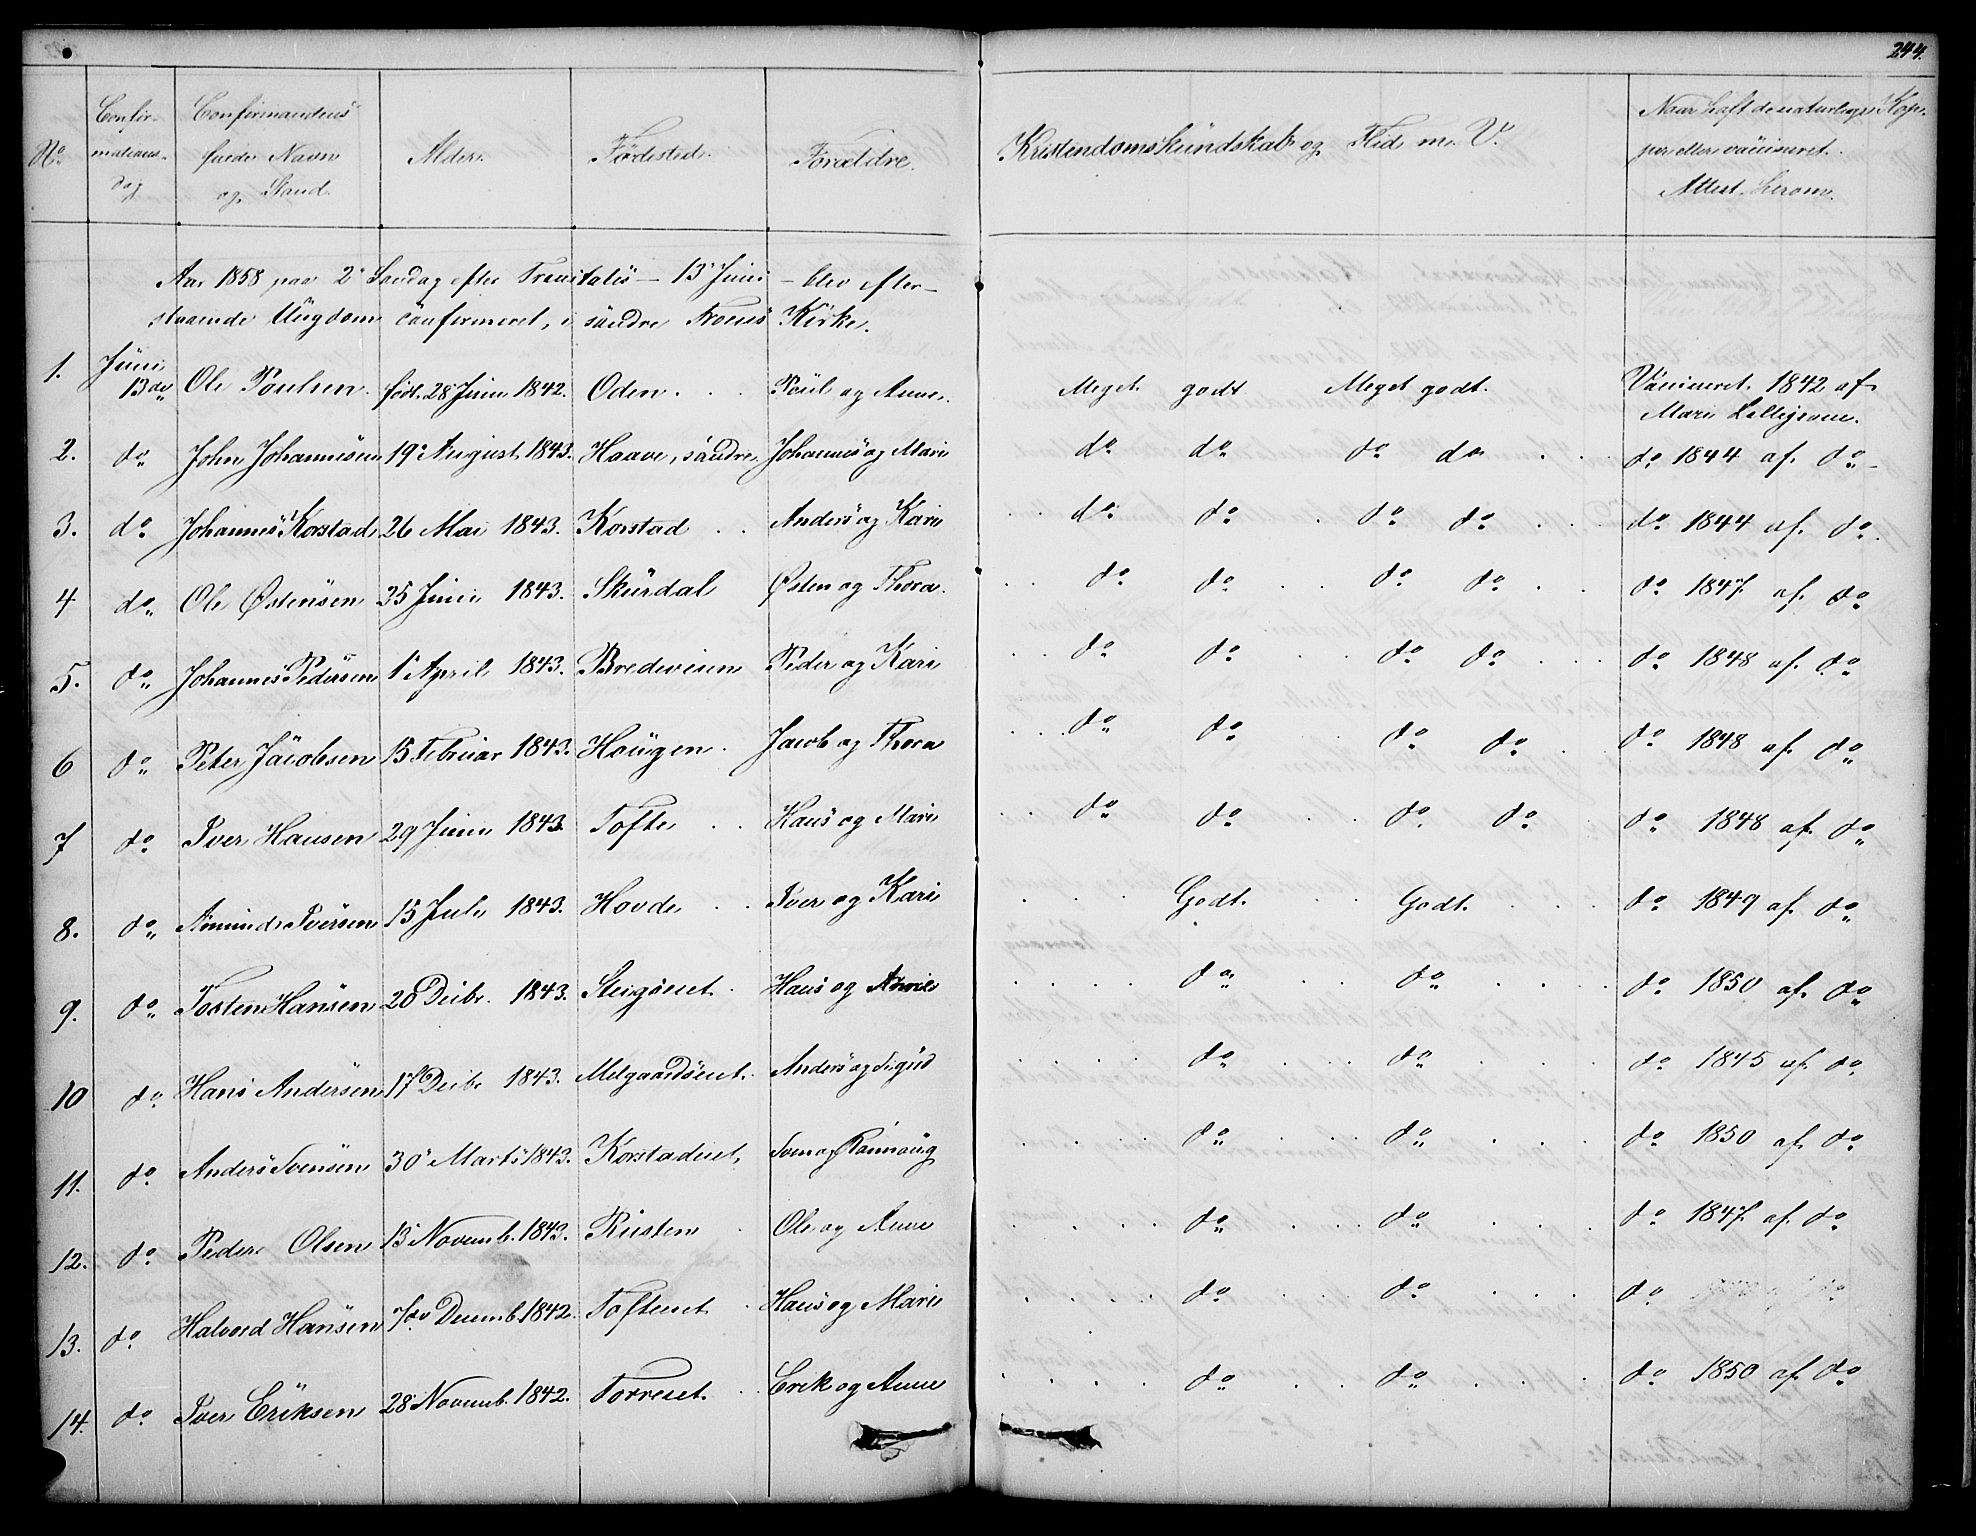 244.
No Confirmations dag Confirmandens fulde Navn og Stand. Alder. Fødested. Forældre. Kristendomskundskab og Flid m. V. Naar haft de naturlige Kopper eller vaccineret. Attest herom.
Aar 1858 paa 2. Søndag efter Trenitatis – 13 Juni – blev efter–
staaende Ungdom confirmeret, i søndre Froens Kirke.
1. Juni 13de Ole Poulsen. født. 28 Juni 1842. Oden. Poul og Anne. Meget godt Meget godt. Vaccineret. 1842 af Mari Lillegrove.
2. do John Johannesen 19 August. 1843. Haave, søndre Johannes og Mari do do do do do 1844 af do
3. do Johannes Korstad 26 Mai 1843. Korstad Anders og Kari do do do do do 1844 af do
4 do Ole Østensen 25 Juni 1843. Skurdal Østen og Thora. do do do do do 1847 af do
5. do Johannes Pedersen 1 April 1843. Bredevien Peder og Kari do do do do do 1848 af do
6 do Peter Jacobsen 15 Februar 1843. Hougen Jacob og Thora do do do do do 1848 af do
7 do Iver Hansen 29 Juni 1843. Tofte Hans og Mari do do do do do 1848 af do
8. do Amund Iversen 15 Juli 1843. Hovde Iver og Kari Godt. Godt. do 1849 af do
9. do Tosten Hansen 20 Decbr. 1843. Steigseiet. Hans og do do do 1850 af do
10 do Hans Andersen 17 Decbr 1843. Melgaardseiet. Anders og Sigrid do do do 1845 af do
11. do Anders Svensen 30 Marts 1843. Korstadeiet, Sven og Rannoug do do do 1850 af do
12. do Peder Olsen 13 Novemb. 1843. Rusten Ole og Anne do do do 1847 af do
13. do Halvord Hansen 7de Decemb. 1842. Tofteeiet Hans og Mari do do do
14. do Iver Eriksen 28 Novemb. 1842. Torreiet. Erik og Anne do do do 1850 af do